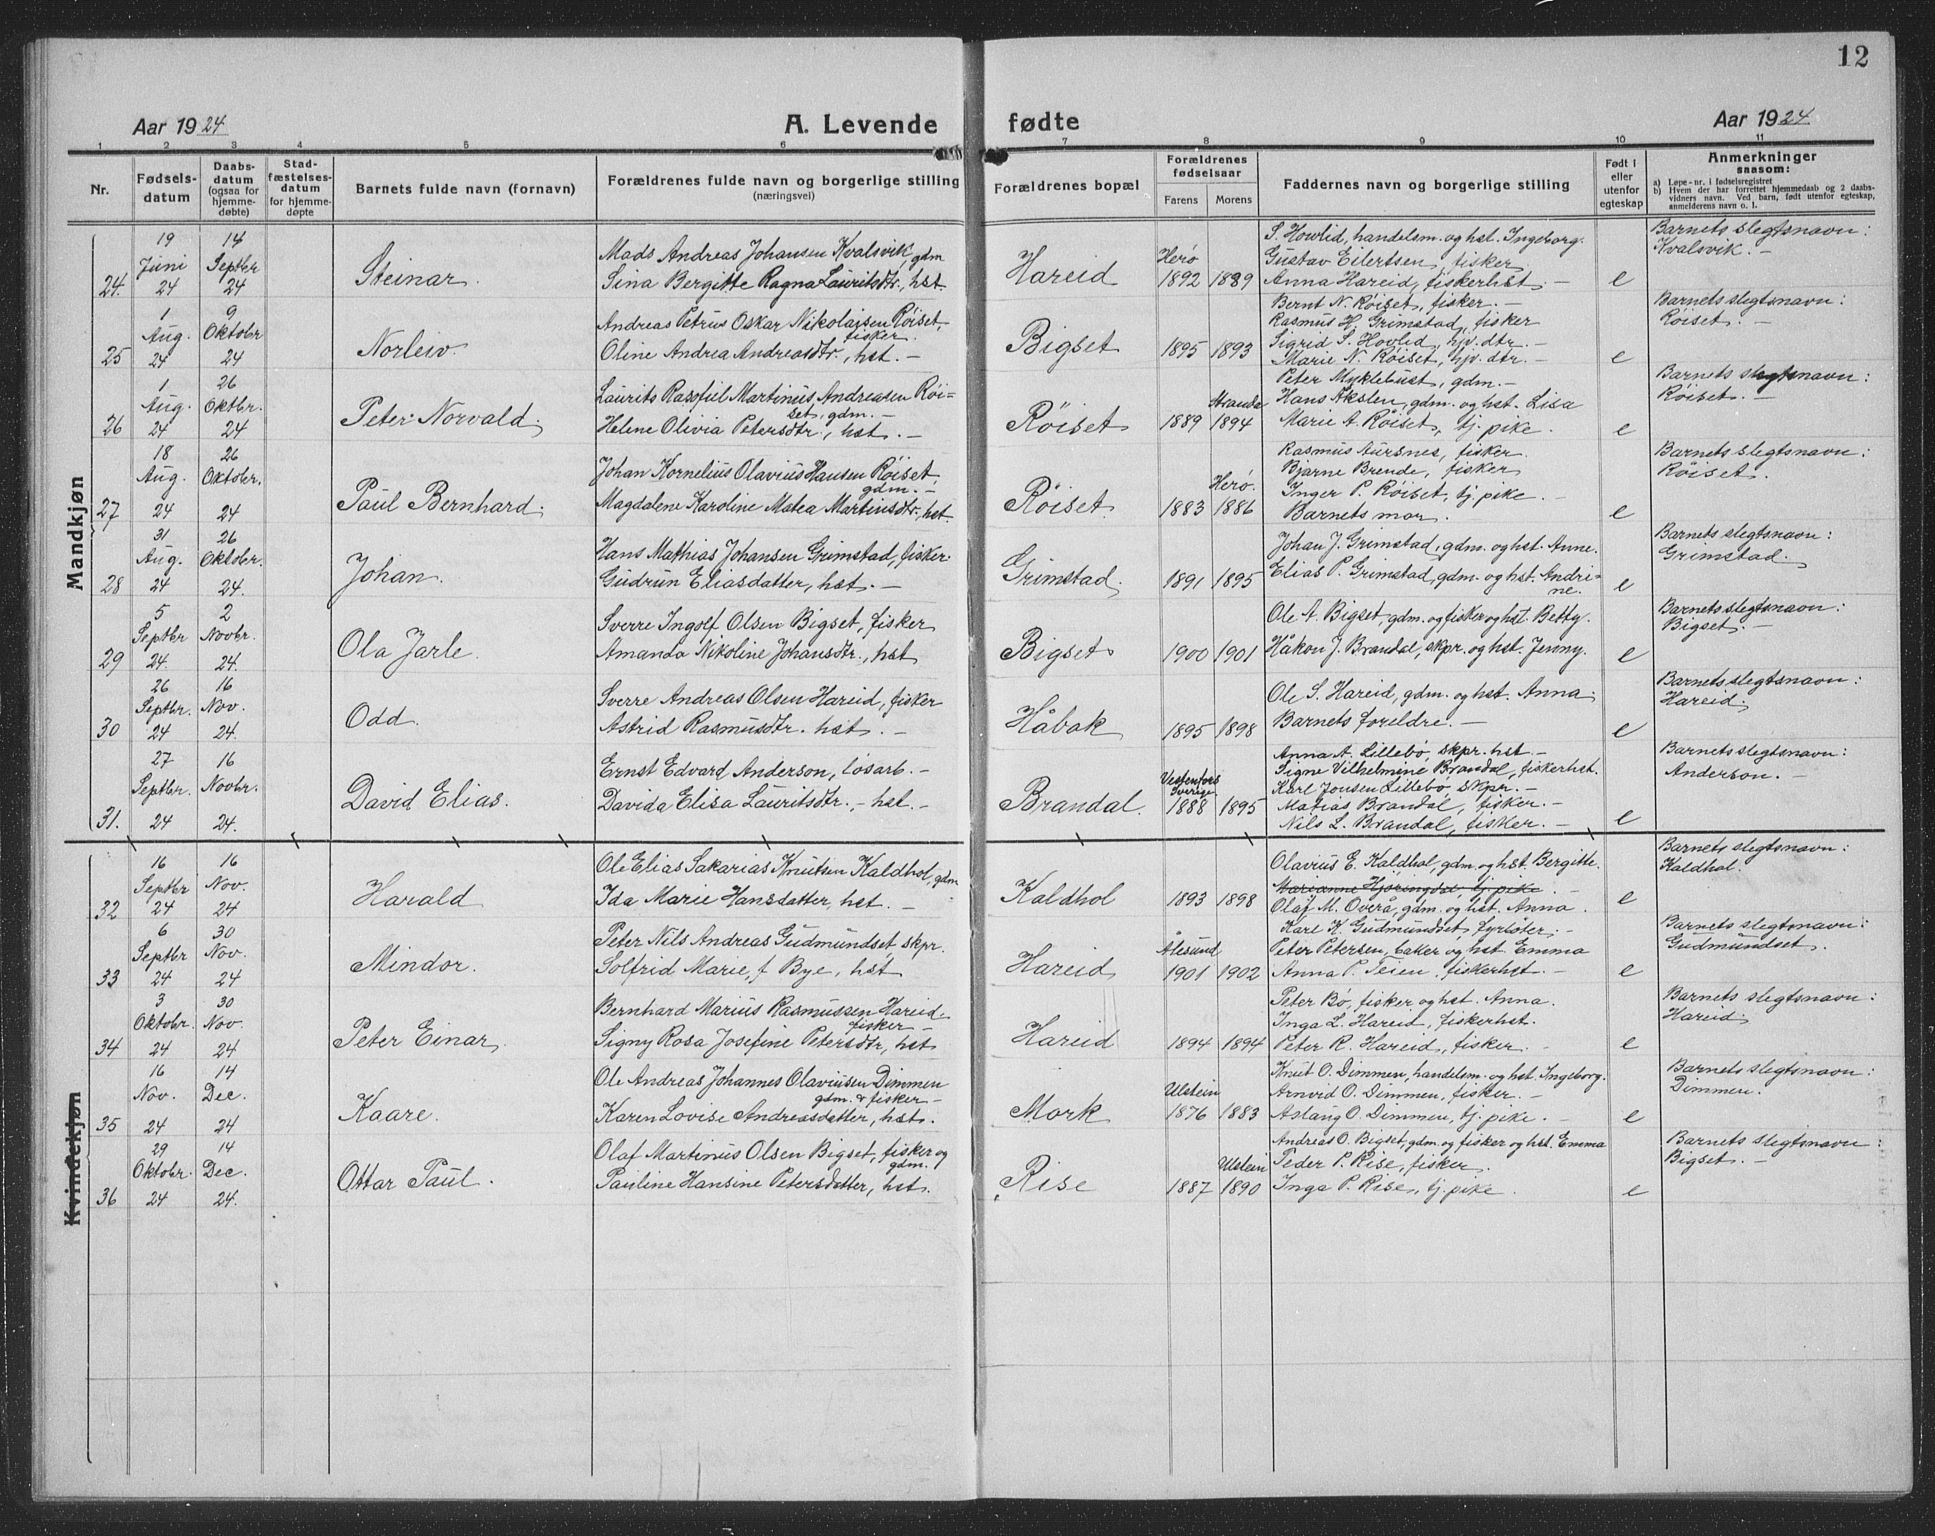 12
Aar 1924
A. Levende
fødte
Aar 1924
1 2 3 4 5 6 7 8 9 10 11
Nr.
Fødsels-
datum
Daabs-
datum
(ogsaa for
hjemme-
døbte)
Stad-
fæstelses-
datum
for hjemme-
døpte
Barnets fulde navn (fornavn)
Forældrenes fulde navn og borgerlige stilling
(næringsvei)
Forældrenes bopæl
Forældrenes
fødselsaar
Farens Morens
Faddernes navn og borgerlige stilling
Født i
eller
utenfor
egteskap
Anmerkninger
saasom:
a) Løpe-nr. i fødselsregistret
b) Hvem der har forrettet hjemmedaab og 2 daabs-
vidners navn. Ved barn, født utenfor egteskap,
anmelderens navn o. l.
Mandkjøn
24.
19
Juni
24
14
Septbr
24
Steinar.
Mads Andreas Johansen Kvalsvik, gdm
Sina Bergitte Ragna Lauritsdtr., hst.
Hareid
Herø
1892 1889
S. Hovlid, handelsm. og hst. Ingeborg.
Gustav Eilertsen, fisker
Anna Hareid, fiskerhst. —
e
Barnets slegtsnavn:
Kvalsvik. —
25
1
Aug.
24
9
Oktobr
24
Norleiv.
Andreas Petrus Oskar Nikolaisen Røiset,
fisker.
Oline Andrea Andreasdtr., hst. —
Bigset
1895 1893
Bernt N. Røiset, fisker. —
Rasmus H. Grimstad, fisker
Sigrid S. Hovlid, hjv. dtr. —
Marie N. Røiset, hjv. dtr. —
e
Barnets slegtsnavn:
Røiset. —
26
1
Aug.
24
26
Oktbr.
24
Peter Norvald.
Laurits Rasfiel Martinus Andreasen Røi-
set, gdm. —
Helene Olivia Petersdtr., hst. —
Røiset
Stranda
1889 1894
Peter Myklebust, gdm. —
Hans Akslen, gdm. og hst. Lisa
Marie A. Røiset, tj. pike.
e
Barnets slegtsnavn:
Røiset. —
27
18
Aug.
24
26
Oktobr.
24
Paul Bernhard.
Johan Kornelius Olavius Hansen Røiset,
gdm. —
Magdalene Karoline Matea Martinsdtr., hst.
Røiset
Herø.
1883 1886
Rasmus Aursnes, fisker.
Bjarne Brende, fisker
Inger P. Røiset, tj. pike. —
Barnets mor.
e
Barnets slegtsnavn:
Røiset.
28
31
Aug.
24
26
Oktobr.
24.
Johan.
Hans Mathias Johansen Grimstad, fisker.
Gudrun Eliasdatter, hst. —
Grimstad.
1891 1895
Johan J. Grimstad, gdm. og hst. Anne.
Elias P. Grimstad, gdm. og hst. Andri-
ne.
e
Barnets slegtsnavn:
Grimstad.
29
5
Septbr
24.
2
Novbr.
24.
Ola Jarle.
Sverre Ingolf Olsen Bigset, fisker
Amanda Nikoline Johansdtr., hst
Bigset
1900 1901
Ole A. Bigset, gdm. og fisker og hst. Betty.
Håkon J. Brandal, skpr. og hst. Jenny.
e
Barnets slegtsnavn:
Bigset. —
30
26
Septbr.
24
16
Nov.
24.
Odd.
Sverre Andreas Olsen Hareid, fisker
Astrid Rasmusdtr. hst. —
Håbak
1895 1898
Ole S. Hareid, gdm. og hst. Anna.
Barnets foreldre. —
e
Barnets slegtsnavn:
Hareid.
31.
27
Septbr.
24
16
Novbr.
24.
David Elias.
Ernst Edvard Anderson, løsarb. —
Davida Elisa Lauritsdtr., — hst. —
Brandal.
Sverige.
1888 1895
Anna A. Lillebø, skpr. hst. —
Signe Vilhelmine Brandal, fiskerhst.
Karl Jensen Lillebø, skpr. —
Matias Brandal, fisker. —
Nils L. Brandal, fisker. —
e
Barnets slegtsnavn:
Anderson. —
Kvindekjøn
32
16
Septbr
24
16
Nov.
24
Harald
Ole Elias Sakarias Knutsen Kaldhol, gdm
Ida Marie Hansdatter, hst. —
Kaldhol
1893 1898
Olavius E. Kaldhol, gdm. og hst. Bergitte.
Marianne Hjøringdal tj. pike. —
Olaf M. Overå, gdm. og hst. Anna.
e
Barnets slegtsnavn:
Kaldhol.
33
6
Septbr
24
30
Nov.
24
Mindor.
Peter Nils Andreas Gudmundset, skpr.
Solfrid Marie, f. Bye, hst
Hareid
Ålesund
1901 1902
Karl K. Gudmundset, fyrbøter. —
Peter Petersen, baker og hst. Emma
Anna P. Teien, fiskerhst. —
e
Barnets slegtsnavn:
Gudmundset.
34
3
Oktobr.
24
30
Nov.
24
Peter Einar.
Bernhard Marius Rasmussen Hareid.
fisker —
Signy Rosa Josefine Petersdtr, hst
Hareid
1894 1894
Peter Bø, fisker og hst. Anna.
Inga L. Hareid, fiskerhst.
Peter R. Hareid, fisker. —
e
Barnets slegtsnavn:
Hareid.
35
16
Nov.
24
14
Dec.
24
Kaare.
Ole Andreas Johannes Olaviusen Dimmen
gdm. & fisker —
Karen Lovise Andreasdatter, hst.
Mork
Ulstein
1876 1883
Knut O. Dimmen, handelsm. og hst. Ingeborg.
Arnvid O. Dimmen, fisker. —
Aslaug O. Dimmen, tj. pike. —
e
Barnets slegtsnavn:
Dimmen.
36
29
Oktobr.
24
14
Dec.
24.
Ottar Paul.
Olaf Martinus Olsen Bigset, fisker og
gdm.
Pauline Hansine Petersdatter, hst.
Rise
Ulstein
1887 1890
Andreas O. Bigset, gdm. og fisker og hst. Emma
Peder P. Rise, fisker.
Inga P. Rise, tj. pike.
e
Barnets slegtsnavn:
Bigset. —